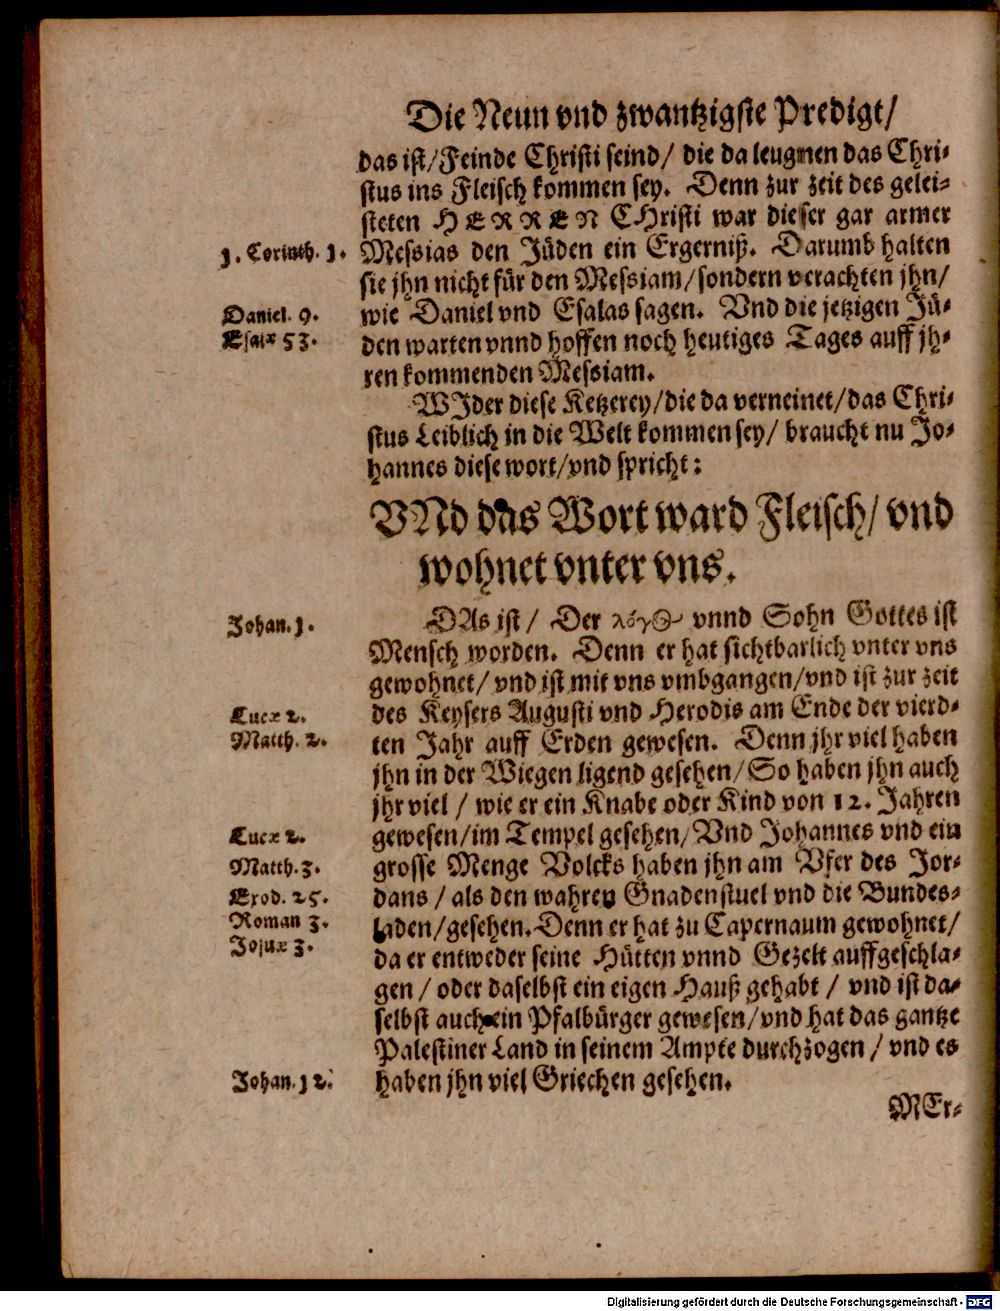 Die Neun vnd zwantzigste Predigt/
das ist/Feinde Christi seind/ die da leugnen das Chri-
stus ins Fleisch kommen sey. Denn zur zeit des gelei-
steten HERREN CHristi war dieser gar armer
1. Corinth. 1. Messias den Jüden ein Ergerniß. Darumb halten
sie jhn nicht für den Messiam/sondern verachten jhn/
Daniel. 9. wie Daniel vnd Esaias sagen. Vnd die jetzigen Jü-
Esaiæ 53. den warten vnnd hoffen noch heutiges Tages auff jh-
ren kommenden Messiam.
WJder diese Ketzerey/die da verneinet/das Chri-
stus Leiblich in die Welt kommen sey/ braucht nu Jo-
hannes diese wort/vnd spricht:
VNd das Wort ward Fleisch/ vnd
wohnet vnter vns.
Johan. 1. DAs ist/ Der λόγος vnnd Sohn Gottes ist
Mensch worden. Denn er hat sichtbarlich vnter vns
gewohnet/ vnd ist mit vns vmbgangen/vnd ist zur zeit
Lucæ 2. des Keysers Augusti vnd Herodis am Ende der vierd-
Matth. 2. ten Jahr auff Erden gewesen. Denn jhr viel haben
jhn in der Wiegen ligend gesehen/ So haben jhn auch
jhr viel / wie er ein Knabe oder Kind von 12. Jahren
Lucæ 2. gewesen/im Tempel gesehen/ Vnd Johannes vnd ein
Matth. 3. grosse Menge Volcks haben jhn am Vfer des Jor-
Exod. 25. dans / als den wahren Gnadenstuel vnd die Bundes-
Roman 3. laden/gesehen. Denn er hat zu Capernaum gewohnet/
Josuæ 3. da er entweder seine Hütten vnnd Gezelt auffgeschla-
gen / oder daselbst ein eigen Hauß gehabt / vnd ist da-
selbst auch ein Pfalbürger gewesen/vnd hat das gantze
Palestiner Land in seinem Ampte durchzogen / vnd es
Johan. 12. haben jhn viel Griechen gesehen.
MEr-
Digitalisierung gefördert durch die Deutsche Forschungsgemeinschaft - DFG